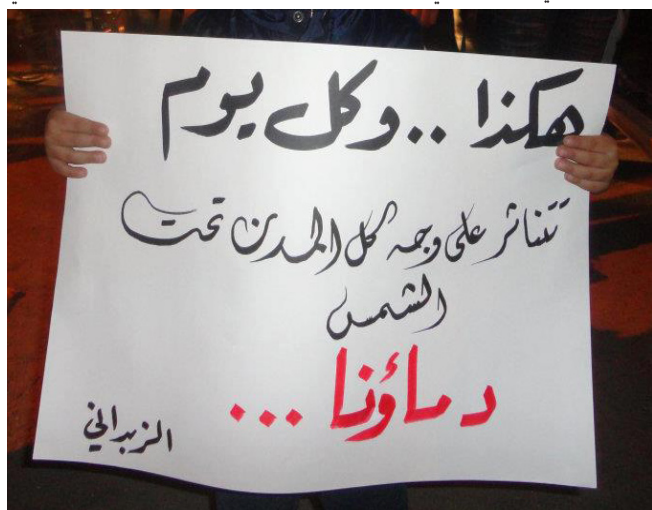 هكذا .. وكل يوم
تتناثر على وجه كل المدن تحت
الشمس
دماؤنا ...
الزبداني